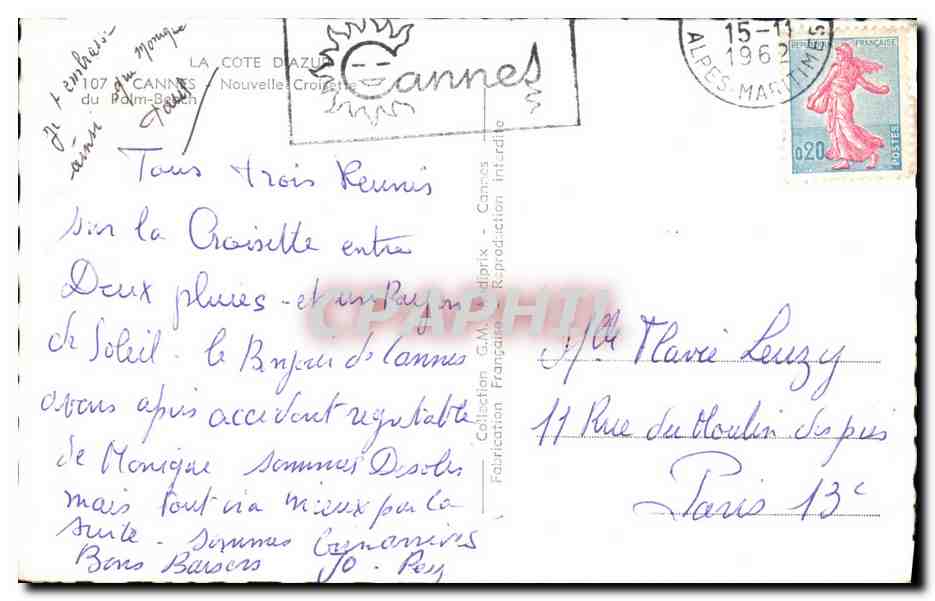 LA COTE D'AZUR
107 - CANNES - Nouvelle Croisette
du Palm-Beach
Je t'embrasse
ainsi que Monique
Cannes
15-11
1962
ALPES-MARITIMES
REPUBLIQUE FRANÇAISE
0,20
POSTES
Tous trois Reunis
sur la Croisette entre
Deux pluies - et un Rayon
de Soleil - le Bonjour de Cannes
avons apris accident regretable
de Monique sommes Desoles
mais tout ira mieux par la
suite - sommes
Bons Baisers Jo -
Collection G.M. - Cannes
Fabrication Française - Reproduction interdite
CPAPHIL
Mlle Marie Leuzy
11 Rue du Moulin des prés
Paris 13e